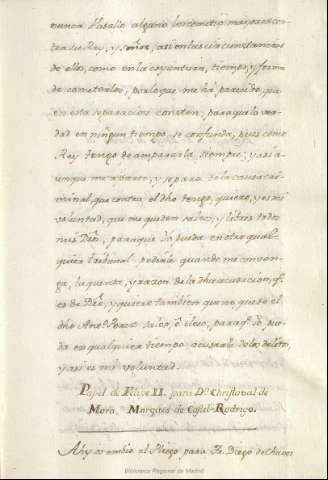 nunca Vasallo alguno los cometió mayores con-
tra su Rey, y Señor, asi en las circunstancias
de ellos, como en la coyuntura, tiempo, y forma
de cometerlos; de lo que me ha parecido, que
en esta separacion conste, para que la ver-
dad en ningun tiempo se confunda, pues como
Rey tengo de ampararla siempre; y asi a-
unque me aparto, y separo de la causa cri-
minal, que contra el dho tengo, quiero, y es mi
voluntad, que me queden salvos, y libres todos
mis Dros, para que Yo pueda en otro qual-
quiera tribunal pedirla quando me conven-
ga, la cuenta, y razon de la dha acusacion, qe.
es de Dro, y quiero tambien que me quede el
dho Anto. Perez salvo, ò ileso, paraqe. Yo pue-
da en qualquiera tiempo acusarle de los delitos,
y asi es mi voluntad.
Papel de Felipe II. para Dn. Christoval de
Mora, Marques de Castel-Rodrigo.
Ahy os embio el Pliego para Fr. Diego de Chaves
Biblioteca Regional de Madrid